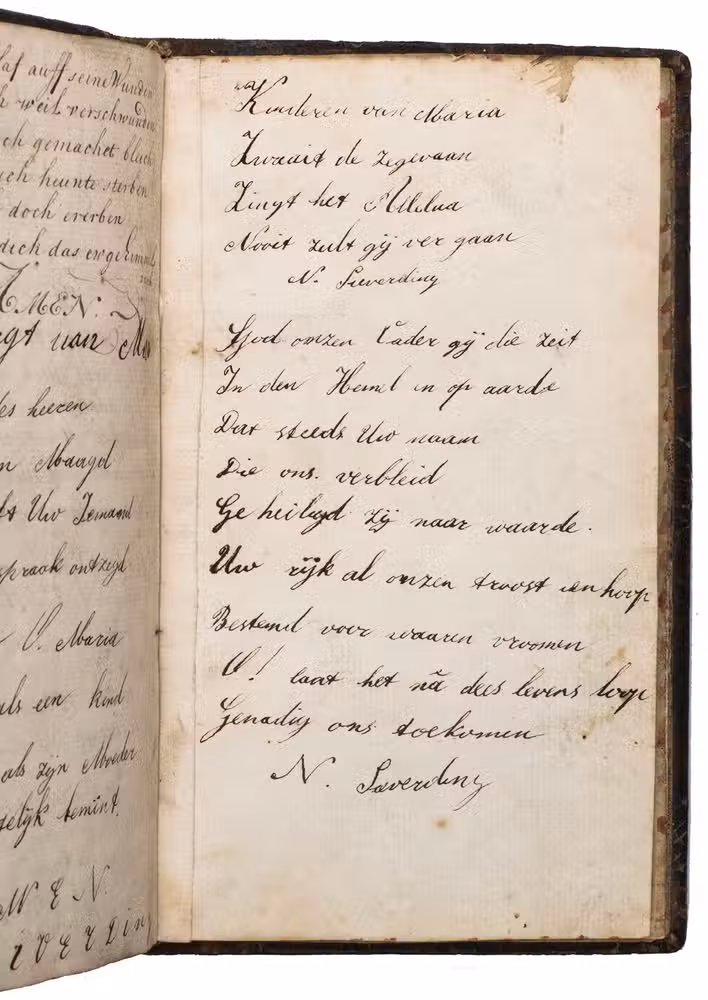 laf auff seine Wunden
h weil verschwunden
ch gemachet bleich
ich heunte sterben
doch ererben
dich das ewge himmel
AMEN.
egt van Ma
des heeren
n Maagd
ft Uw Iemand
spraak ontzegd
O. Maria
als een kind
als zijn Moeder
gelijk bemint.
M E N.
I V E R D I N
Kinderen van Maria
Zwaait de zegevaan
Zingt het Allelua
Nooit zult gij ver gaan
N. Sieverding
God onzen Vader gij die zeit
In den Hemel en op aarde
Dat steeds Uw naam
Die ons. verbleid
Ge heiligd zij naar waarde.
Uw rijk al onzen troost en hoop
Bestemd voor waaren vroomen
O! laat het nā dees levens loop
Genadig ons toekomen
N. Sieverding